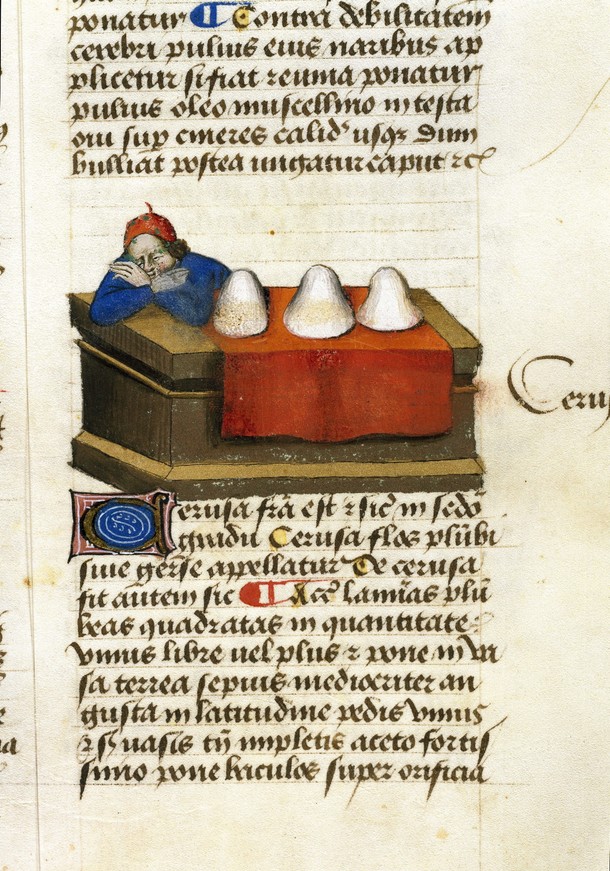 ponatur ¶ Contra debilitatem
cerebri puluis eius naribus ap
plicetur si fiat reuma ponatur
puluis oleo muscellino in testa
oui sup cineres calid usqz dum
bulliat postea ungatur caput rc
Cerusa fra est r sic in sedo
gradu Cerusa flos plubi
siue gerse appellatur De cerusa
fit autem sic ¶ Acc laminas plu
beas quadratas in quantitate
vnius libre uel plus r pone in va
sa terrea sepius mediocriter an
gusta in latitudine pedis vnius
r vasis impletis aceto fortis
simo pone baculos super orificia
Cerus